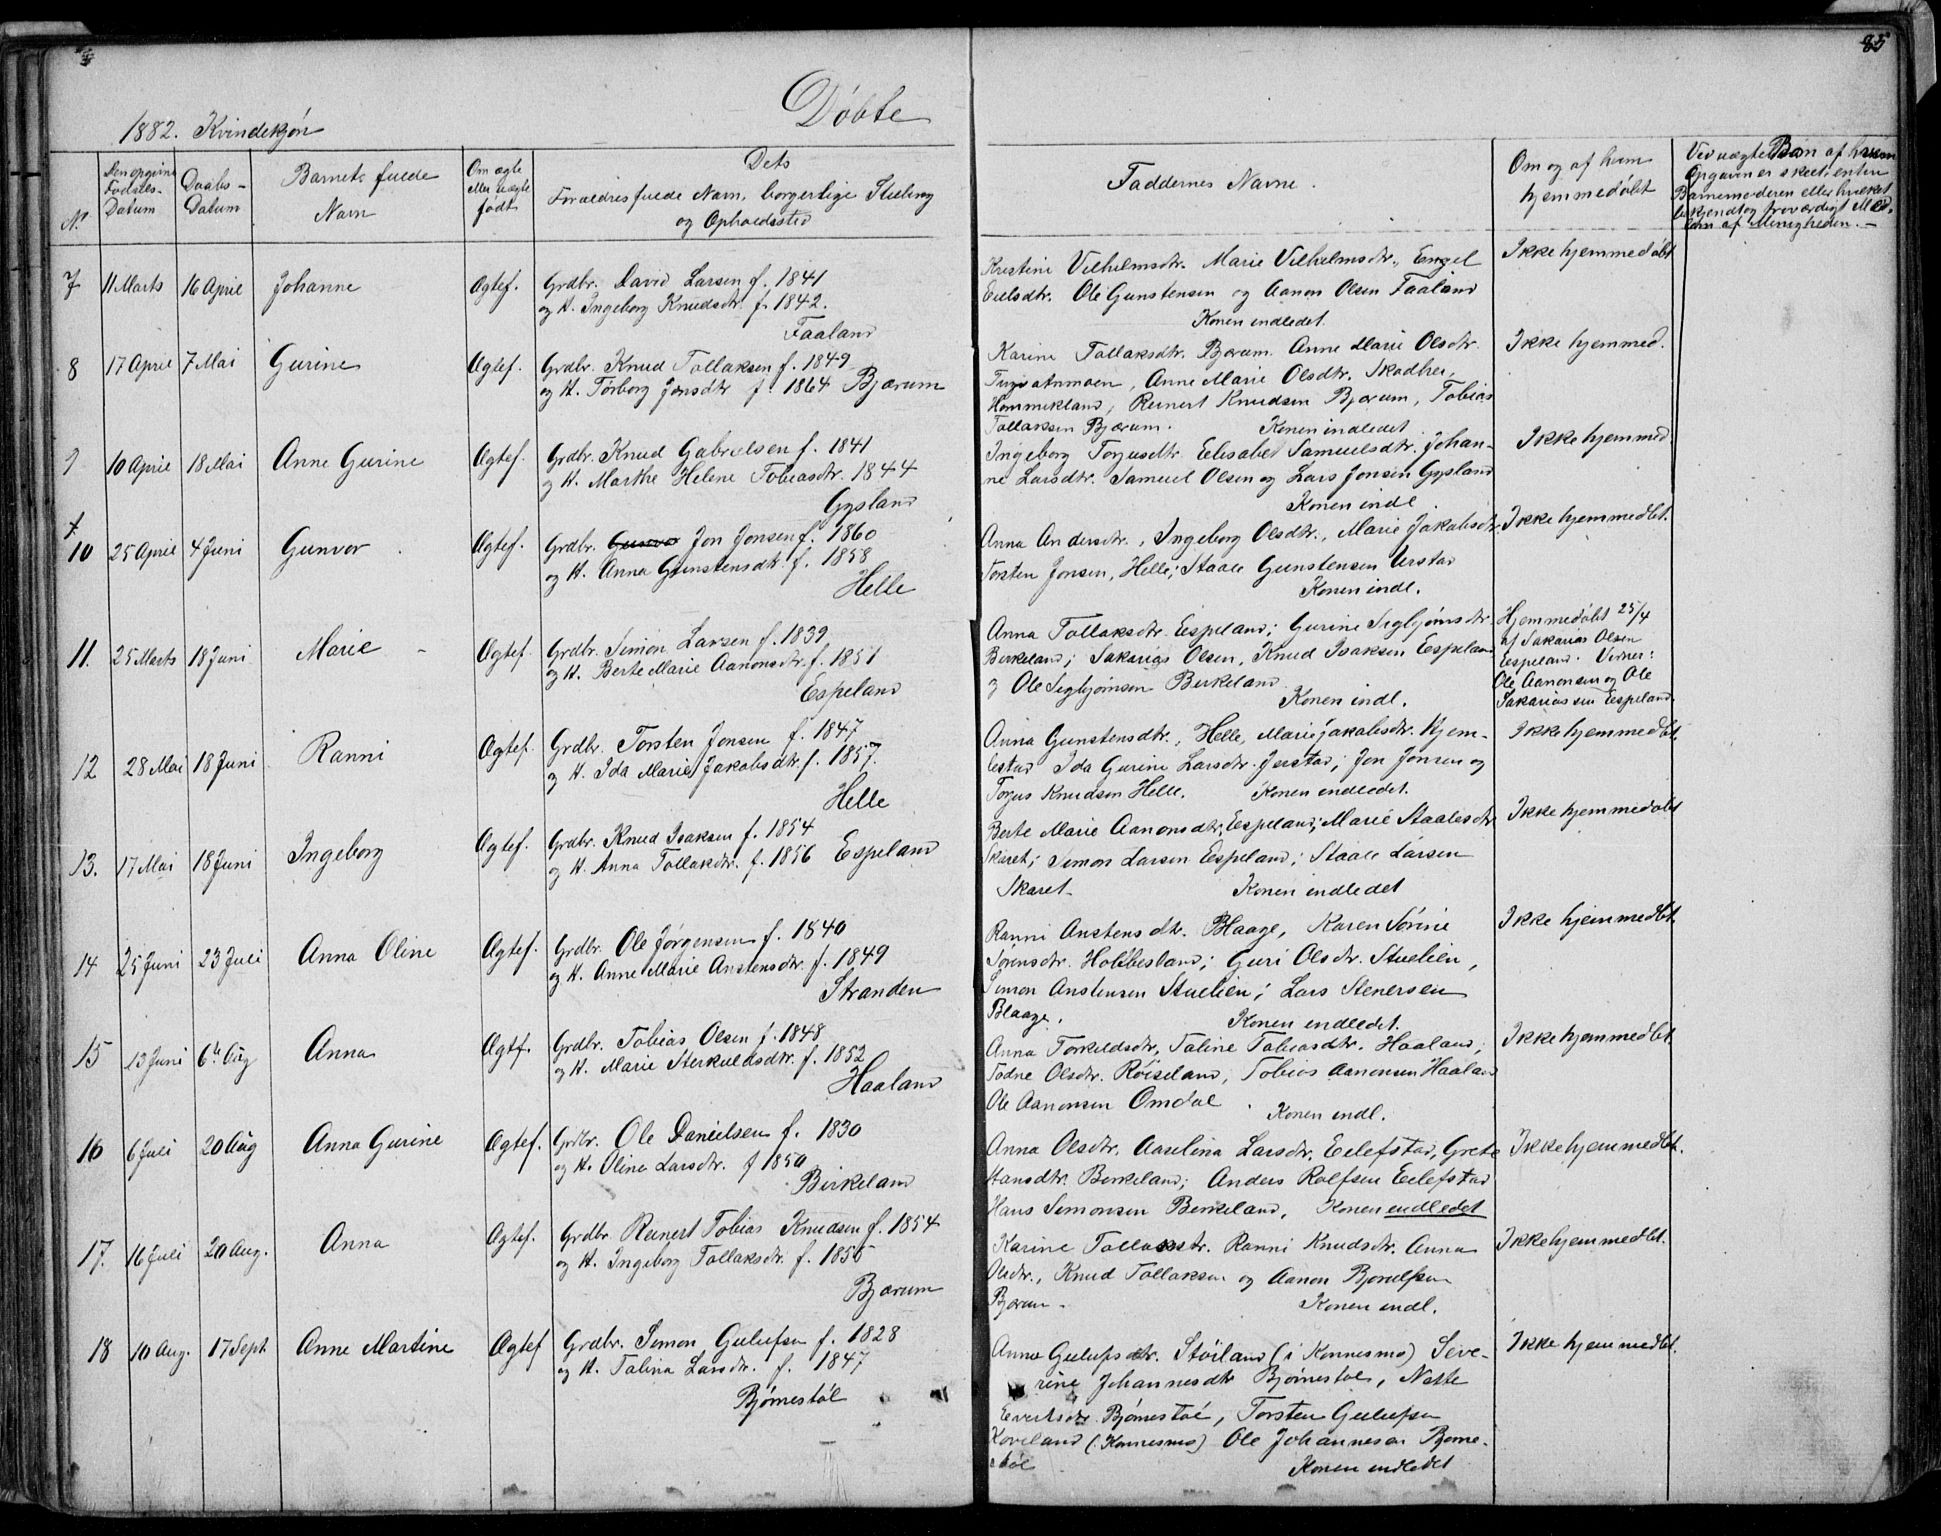 85
Döbte
1882. Kvindekjön
No.
Den opgivne Födsels-Datum
Daabs-Datum
Barnets fulde Navn
Om ægte eller uægte födt
Dets Forældres fulde Navn, borgerlige Stilling og Opholdssted
Faddernes Navne.
Om og af hvem hjemmedöbt
Ved uægte Börn af hvem Opgaven er skeet: enten Barnemoderen eller hvilket bekjendt og troværdigt Medlem af Menigheden.
7 11 Marts 16 April Johanne Ægtef. Grdbr. David Larsen f. 1841
og H. Ingeborg Knudsdtr. f. 1842.
Faaland
Kristine Vilhelmsdtr. Marie Vilhelmsdtr., Engel
Eielsdtr. Ole Gunstensen og Aanon Olsen Faaland
Konen indledet.
Ikke hjemmedöbt
8 17 April 7 Mai Gurine Ægtef. Grdbr. Knud Tollaksen f. 1849
og H. Torborg Jonsdtr f. 1864 Bjærum
Karine Tollaksdtr. Bjærum. Anne Marie Olsdtr.
Anne Marie Olsdtr. Skodher,
Hommekland, Reinert Knudsen Bjærum, Tobias
Tollaksen Bjærum. Konen indledet
Ikke hjemmed.
9 10 April 18 Mai Anne Gurine Ægtef. Grdbr. Knud Gabrielsen f. 1841
og H. Marthe Helene Tobiasdtr. 1844
Gysland
Ingeborg Torgusdtr. Elisabet Samuelsdtr. Johan-
ne Larsdtr. Samuel Olsen og Lars Jonsen Gysland
Konen indl.
Ikke hjemmed.
10 25 April 4 Juni Gunvor Ægtef. Grdbr. Gunvor Jon Jonsen f. 1860
og H. Anna Gunstensdtr. f. 1858
Helle
Anna Andersdtr., Ingeborg Olsdtr., Marie Jakobsdtr.
Torsten Jonsen, Helle; Staale Gunstensen Urstad
Konen indl.
Ikke hjemmedöbt.
11. 25 Marts 18 Juni Marie Ægtef. Grdbr. Simon Larsen f. 1839
og H. Berte Marie Aanonsdtr. f. 1851
Espeland
Anna Tollaksdtr. Espeland; Gurine Sigbjörnsdtr
Birkeland; Sakarias Olsen, Knud Isaksen Espeland
og Ole Sigbjörnsen Birkeland
Konen indl.
Hjemmedöbt 25/4
af Sakarias Olsen
Espeland. Vidner:
Ole Aanonsen og Ole
Sakariassen Espeland.
12 28 Mai 18 Juni Ranni Ægtef. Grdbr. Torsten Jonsen f. 1847
og H. Ida Marie Jakobsdtr. f. 1857.
Helle
Anna Gunstensdtr., Helle, Marie Jakobsdtr. Hjem-
lestad Ida Gurine Larsdtr. Jerstad; Jon Jonsen og
Torgus Knudsen Helle. Konen indledet.
Ikke hjemmedöbt.
13. 17 Mai 18 Juni Ingeborg Ægtef. Grdbr. Knud Isaksen f. 1854
og H. Anna Tollaksdtr. f. 1856 Espeland
Berte Marie Aanonsdtr, Espeland; Marie Staalesdtr
Skaret; Simon Larsen Espeland; Staale Larsen
Skaret. Konen indledet
Ikke hjemmedöbt
14 25 Juni 23 Juli Anna Oline Ægtef. Grdbr. Ole Jörgensen f. 1840
og H. Anne Marie Anstensdtr. f. 1849
Stranden
Ranni Anstensdtr. Blaage, Karen Sörine
Sörensdtr. Holbesland; Guri Olsdtr. Stuelien,
Simon Anstensen Stuelien; Lars Stenersen
Blaage. Konen indledet.
Ikke hjemmedöbt.
15 13 Juni 6te Aug Anna Ægtf. Grdbr. Tobias Olsen f. 1848
og H. Marie Sterkuldsdtr. f. 1852
Haaland
Anna Torkildsdtr, Taline Tobiasdtr. Haaland;
Todne Olsdtr. Röiseland, Tobias Aanonsen Haaland
Ole Aanonsen Omdal. Konen indl.
Ikke hjemmedöbt.
16 6 Juli 20 Aug Anna Gurine Ægtef. Grdbr. Ole Danielsen f. 1830
og H. Oline Larsdtr. f 1850
Birkeland
Anna Olsdtr. Aaselina Larsdtr. Eilefstad, Grete
Hansdtr. Birkeland; Anders Rolfsen Eilefstad
Hans Simonsen Birkeland, Konen indledet
Ikke hjemmedöbt.
17. 16 Juli 20 Aug. Anna Ægtef. Grdbr. Reinert Tobias Knudsen f. 1854
og H. Ingeborg Tollaksdtr. f. 1855
Bjærum
Karine Tollaksdtr. Ranni Knudsdtr. Anna
Olsdtr., Knud Tollaksen og Aanon Bjorulfsen
Bjærum. Konen indl.
Ikke hjemmedöbt.
18 10 Aug. 17 Sept Anne Martine Ægtef Grdbr. Simon Gulufsen f. 1828
og H. Talina Larsdtr. f. 1847
Björnestöl
Anne Gulufsdtr. Stöiland (i Konnesmo) Seve-
rine Johannesdtr Björnestöl, Nette
Evertsdtr. Björnestöl, Torsten Gulufsen
Koveland (Konnesmo) Ole Johannesen Bjorne-
stöl Konen indledet
Ikke hjemmedöbt.